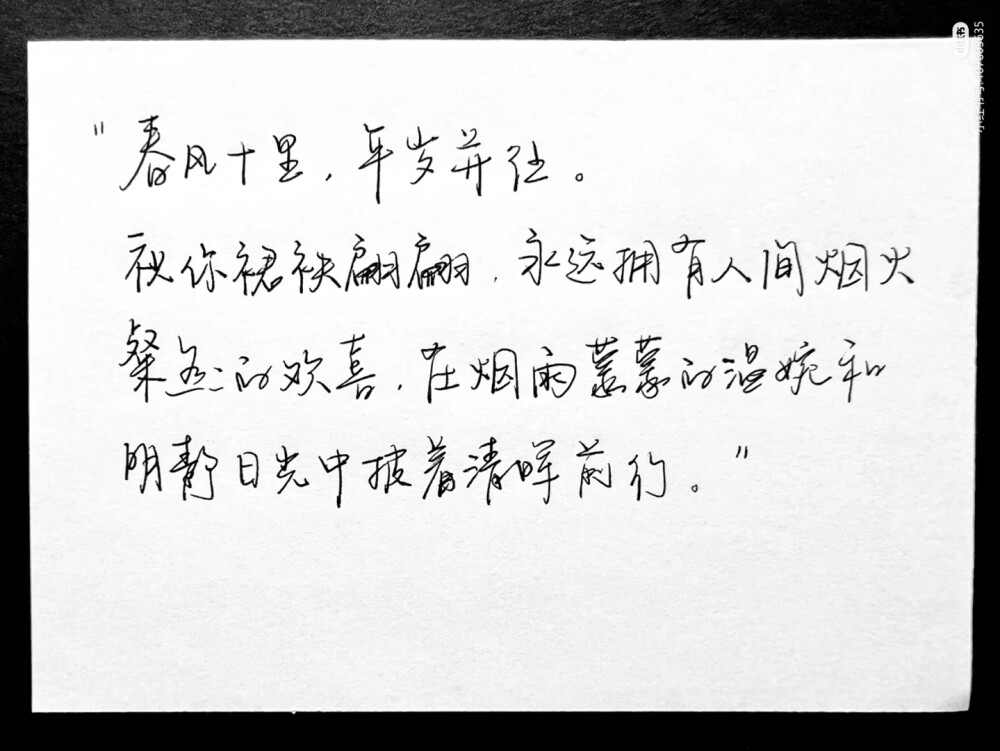 "春风十里，年岁并往。
祝你裙袂翩翩，永远拥有人间烟火
粲然的欢喜，在烟雨蒙蒙的温婉和
明静日光中披着清晖前行。"